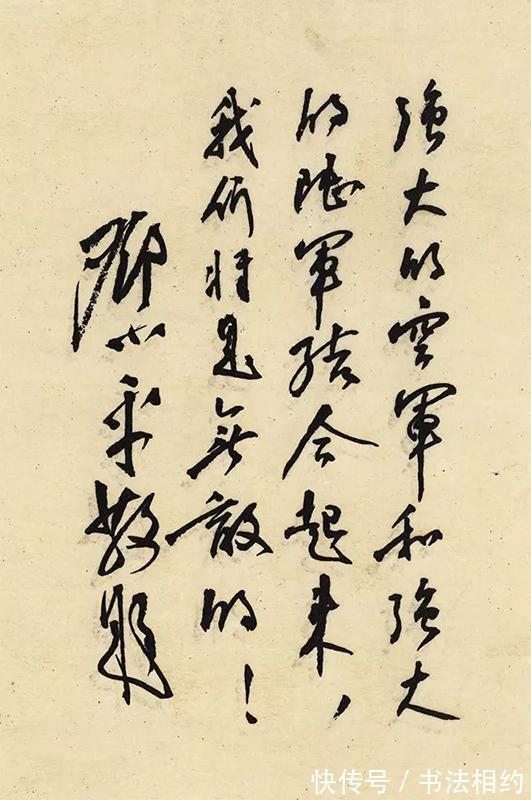 强大的空軍和强大
的陸軍结合起来，
我们将是無敵的！
邓小平敬题
快传号/书法相约